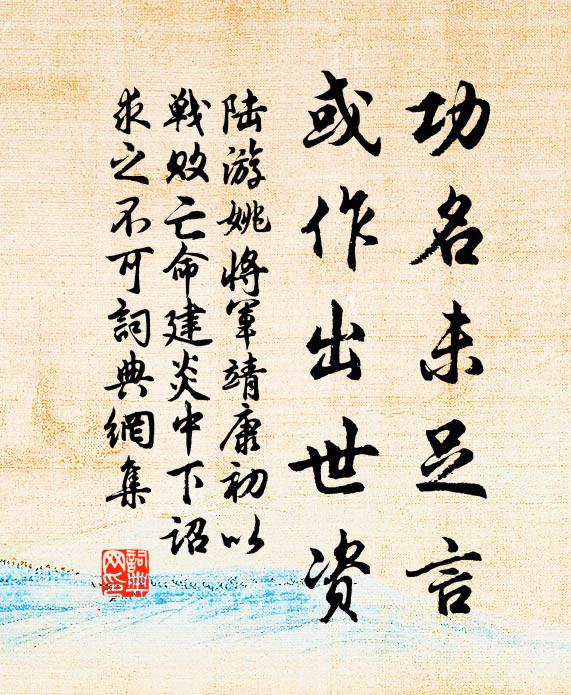 功名未足言
或作出世资
陆游姚将军靖康初以
戰败亡命建炎中下诏
求之不可詞典網集
詞典网印